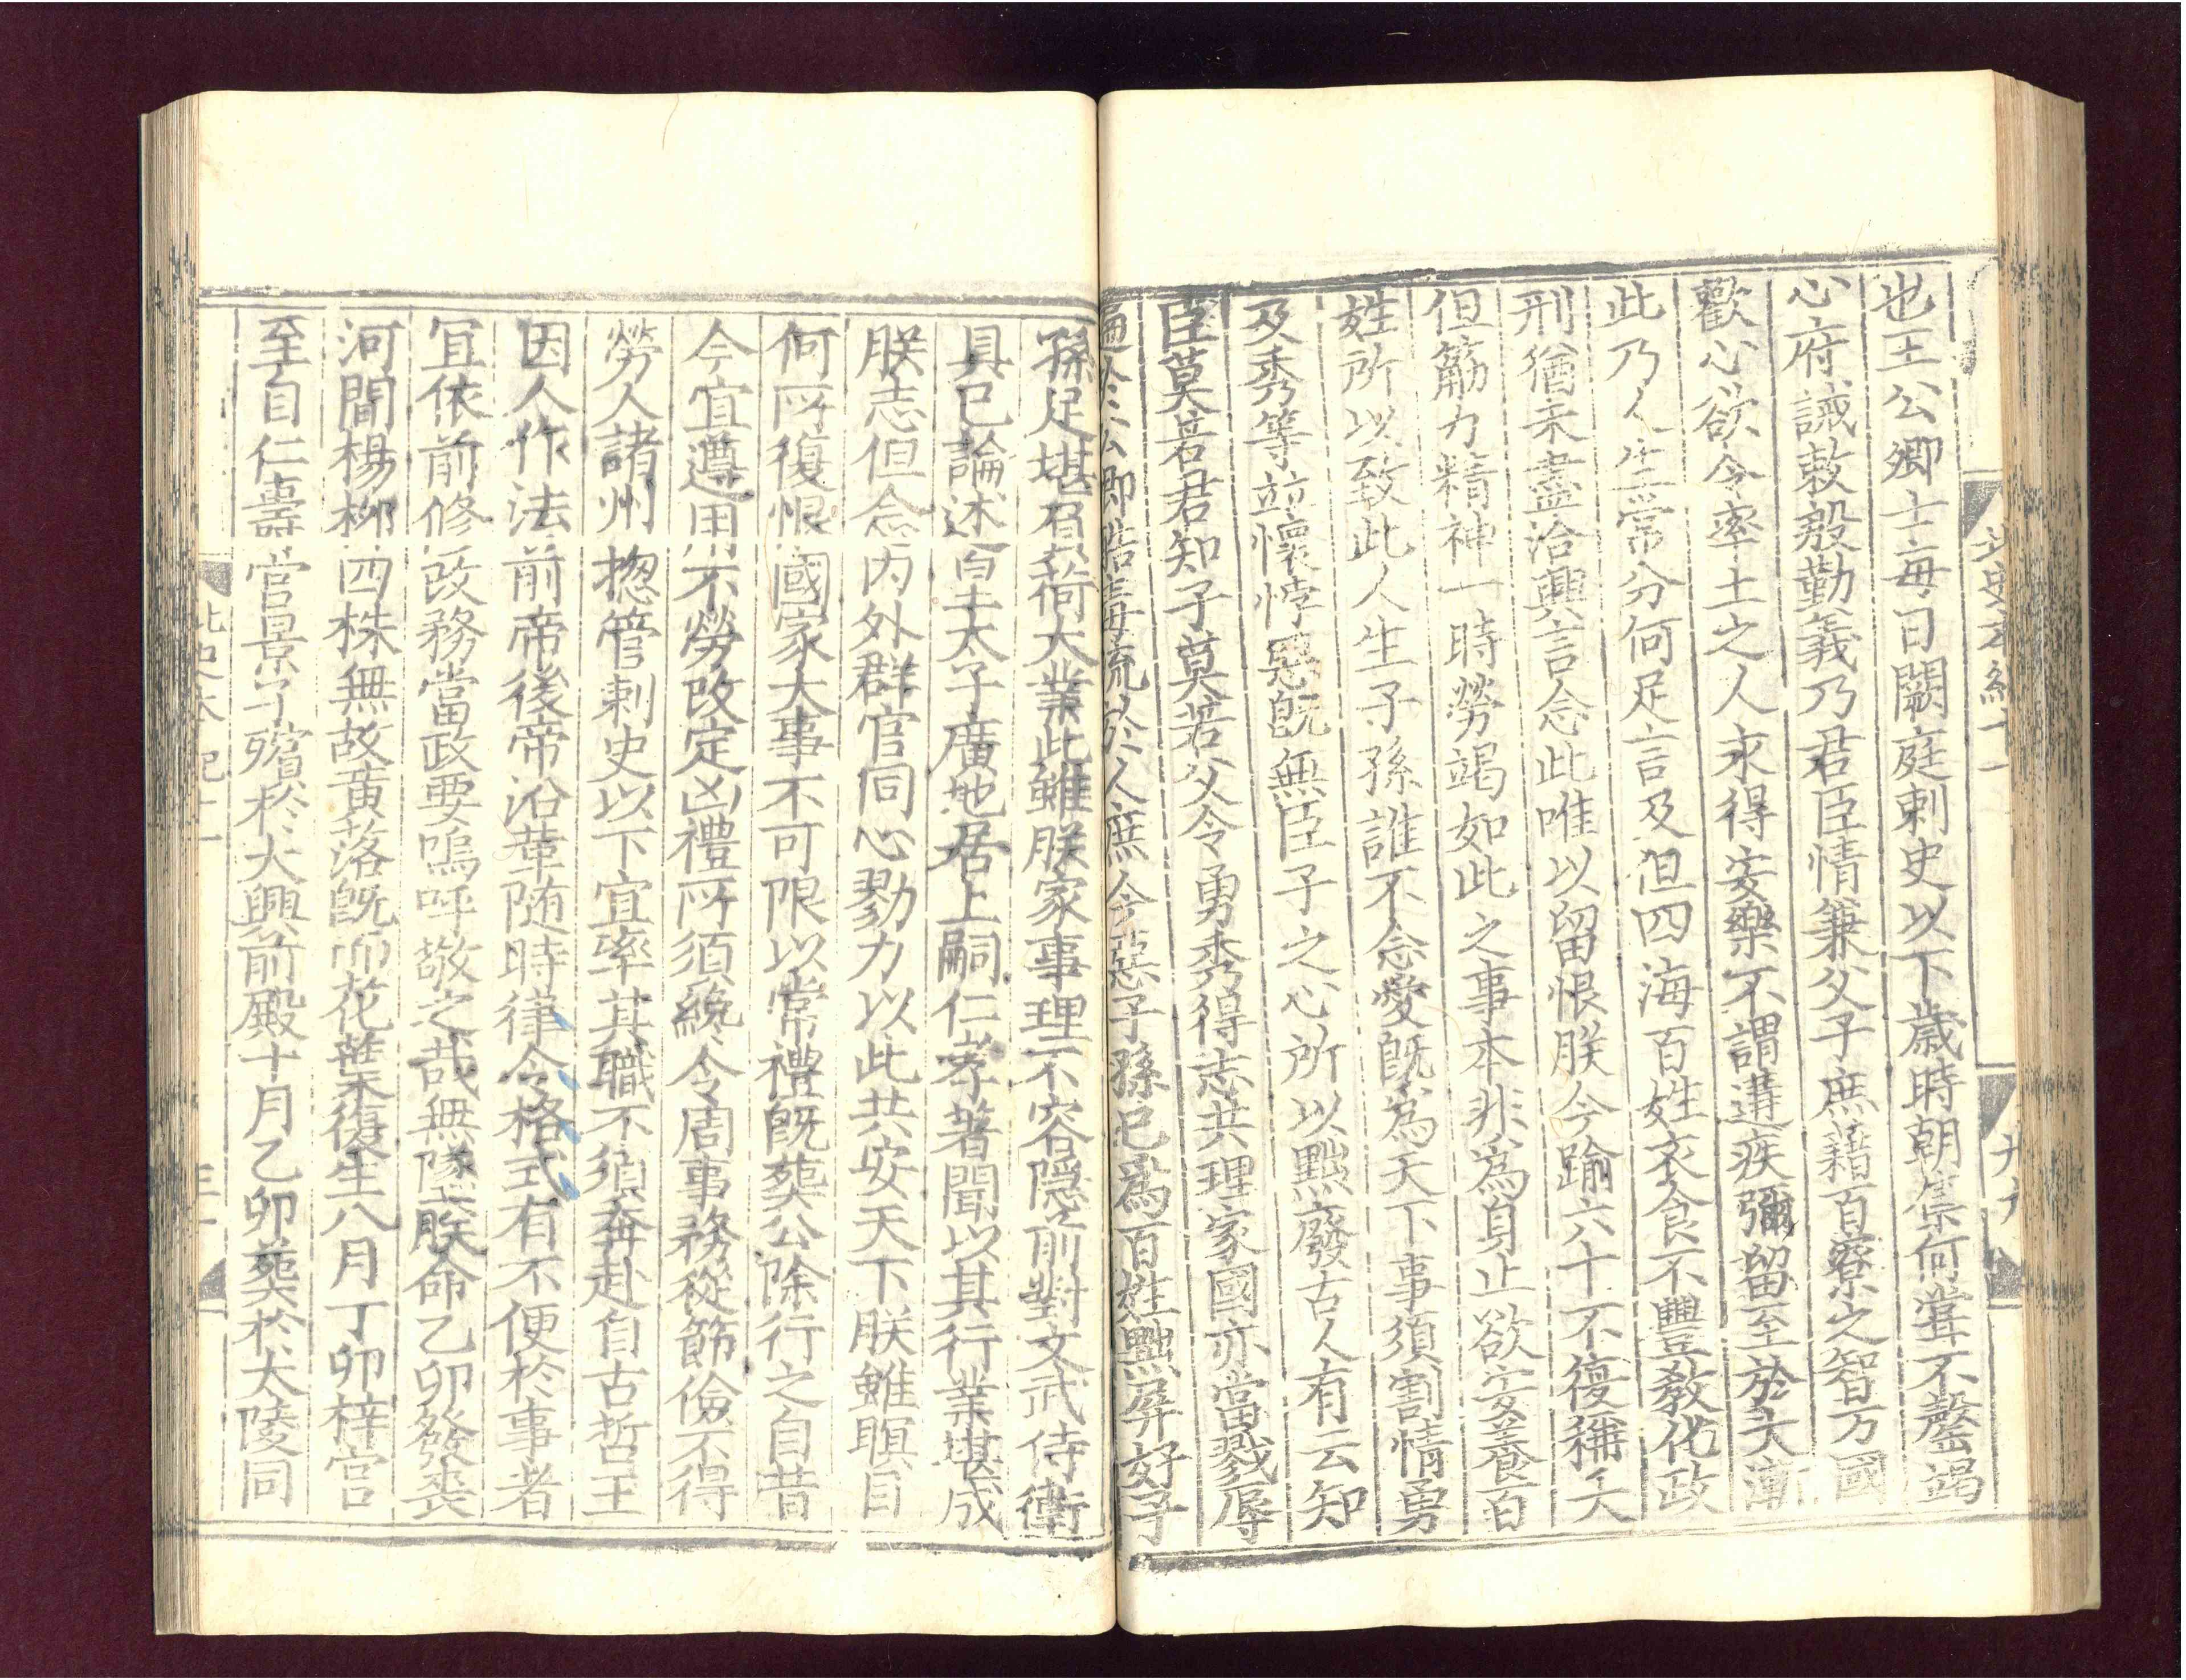 北史本紀十一
也王公卿士每日闕庭刺史以下歲時朝集何嘗不罄竭
心府誡敕殷勤義乃君臣情兼父子庶藉百寮之智万國
歡心欲令率土之人永得安樂不謂遘疾彌留至於大漸
此乃人生常分何足言及但四海百姓衣食不豐敎化政
刑猶未盡洽興言念此唯以留恨朕今踰六十不復稱夭
但筋力精神一時勞竭如此之事本非爲身止欲安養百
姓所以致此人生子孫誰不念愛旣爲天下事須割情勇
及秀等並懷悖惡旣無臣子之心所以黜廢古人有云知
臣莫若君知子莫若父令勇秀得志共理家國亦當戮辱
遍於公卿酷毒流於人庶今惡子孫已爲百姓黜屏好子
孫足堪負荷大業此雖朕家事理不容隱前對文武侍衛
具已論述皇太子廣地居上嗣仁孝著聞以其行業堪成
朕志但念内外群官同心勠力以此共安天下朕雖瞑目
何所復恨國家大事不可限以常禮旣葬公除行之自昔
今宜遵用不勞改定凶禮所須纔令周事務從節儉不得
勞人諸州揔管刺史以下宜率其職不須奔赴自古哲王
因人作法前帝後帝沿革随時律令格式有不便於事者
宜依前修改務當政要嗚呼敬之哉無墜朕命乙卯發喪
河間楊柳四株無故黄落旣而花葉復生八月丁卯梓宮
至自仁壽宮景子殯於大興前殿十月乙卯葬於太陵同
北史本紀十一